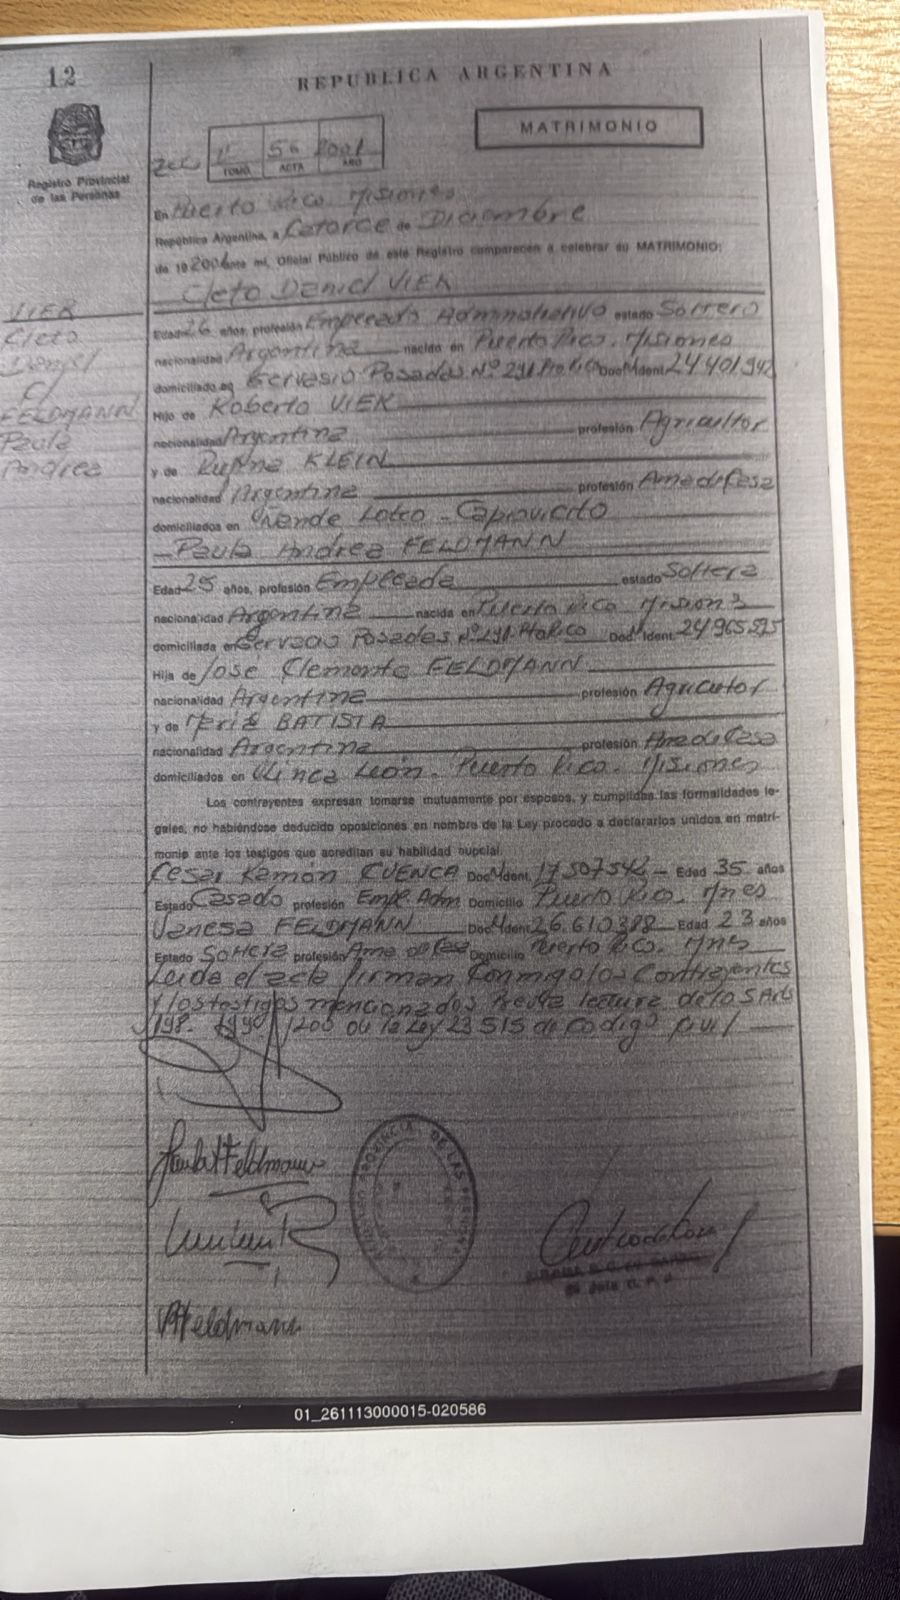 12
REPUBLICA ARGENTINA
MATRIMONIO
Registro Provincial
de las Personas
II 56 2001
TOMO ACTA AÑO
En Puerto Rico Misiones
República Argentina, a Catorce de Diciembre
de 19 2001 ante mí, Oficial Público de este Registro comparecen a celebrar su MATRIMONIO:
Cleto Daniel VIER
VIER
Cleto
Daniel
C/
FELDMANN
Paula
Andrea
Edad 26 años, profesión Empleado Administrativo estado Soltero
nacionalidad Argentina nacido en Puerto Rico. Misiones
domiciliado en Gervasio Posadas Nº 291 Pto Rico Doc M Ident. 24401942
Hijo de Roberto VIER
nacionalidad Argentina profesión Agricultor
y de KLEIN
nacionalidad Argentina profesión Ama de Casa
domiciliados en Capiovicito
Paula Andrea FELDMANN
Edad 25 años, profesión Empleada estado Soltera
nacionalidad Argentina nacida en Puerto Rico Misiones
domiciliada en Gervacio Posadas Nº 291-Pto Rico Doc M Ident. 24965595
Hija de José Clemente FELDMANN
nacionalidad Argentina profesión Agricultor
y de María BATISTA
nacionalidad Argentina profesión Ama de Casa
domiciliados en Línea León. Puerto Rico. Misiones
Los contrayentes expresan tomarse mutuamente por esposos, y cumplidas las formalidades le-
gales, no habiéndose deducido oposiciones en nombre de la Ley procedo a declararlos unidos en matri-
monio ante los testigos que acreditan su habilidad nupcial.
Cesar Ramón CUENCA Doc M Ident. 17507542 Edad 35 años
Estado Casado profesión Empl. Adm Domicilio Puerto Rico. Mnes
Vanesa FELDMANN Doc M Ident 26.610388 Edad 23 años
Estado Soltera profesión Ama de Casa Domicilio Puerto Rico. Mnes
Leída el acta firman conmigo los Contrayentes
y los testigos mencionados previa lectura de los Arts
198- 199 y 200 de la Ley 23515 de Codigo Civil
PROVINCIAL DE LAS PERSONAS
01_261113000015-020586